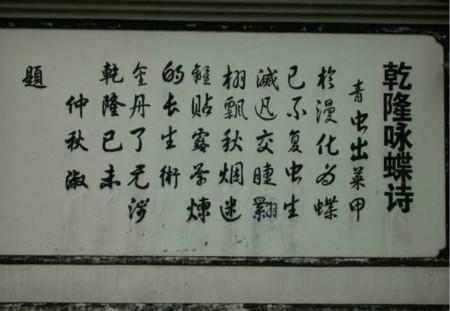 乾隆咏蝶诗
青虫出菜甲
於漫化为蝶
已不复虫生
滅迅交睫翾
栩飘秋烟迷
贴露煉
的长生術
金丹了无
乾隆己未
仲秋淑
題